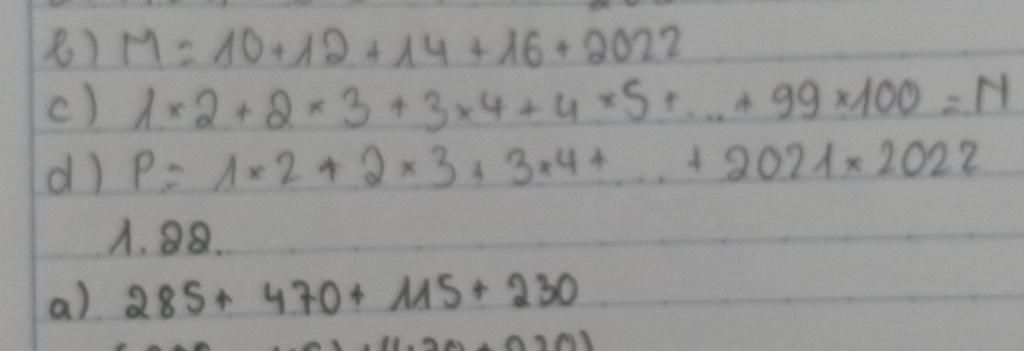 b) M = 10 + 12 + 14 + 16 + 2022
c) 1 × 2 + 2 × 3 + 3 × 4 + 4 × 5 + ... + 99 × 100 = N
d) P = 1 × 2 + 2 × 3 + 3 × 4 + ... + 2021 × 2022
1.22.
a) 285 + 470 + 115 + 230